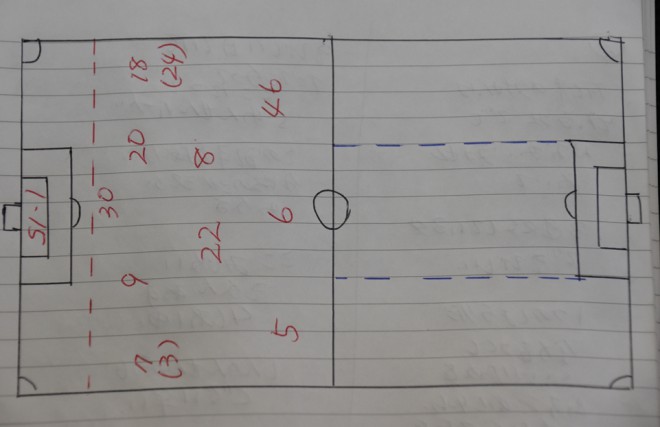 51-1
30
7 9 20 18
(3) (24)
22 8
5 6 46